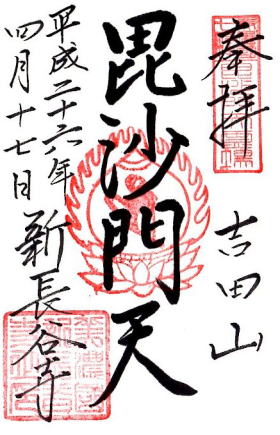 奉拝
吉田山
毘沙門天
平成二十六年
四月十七日
新長谷寺